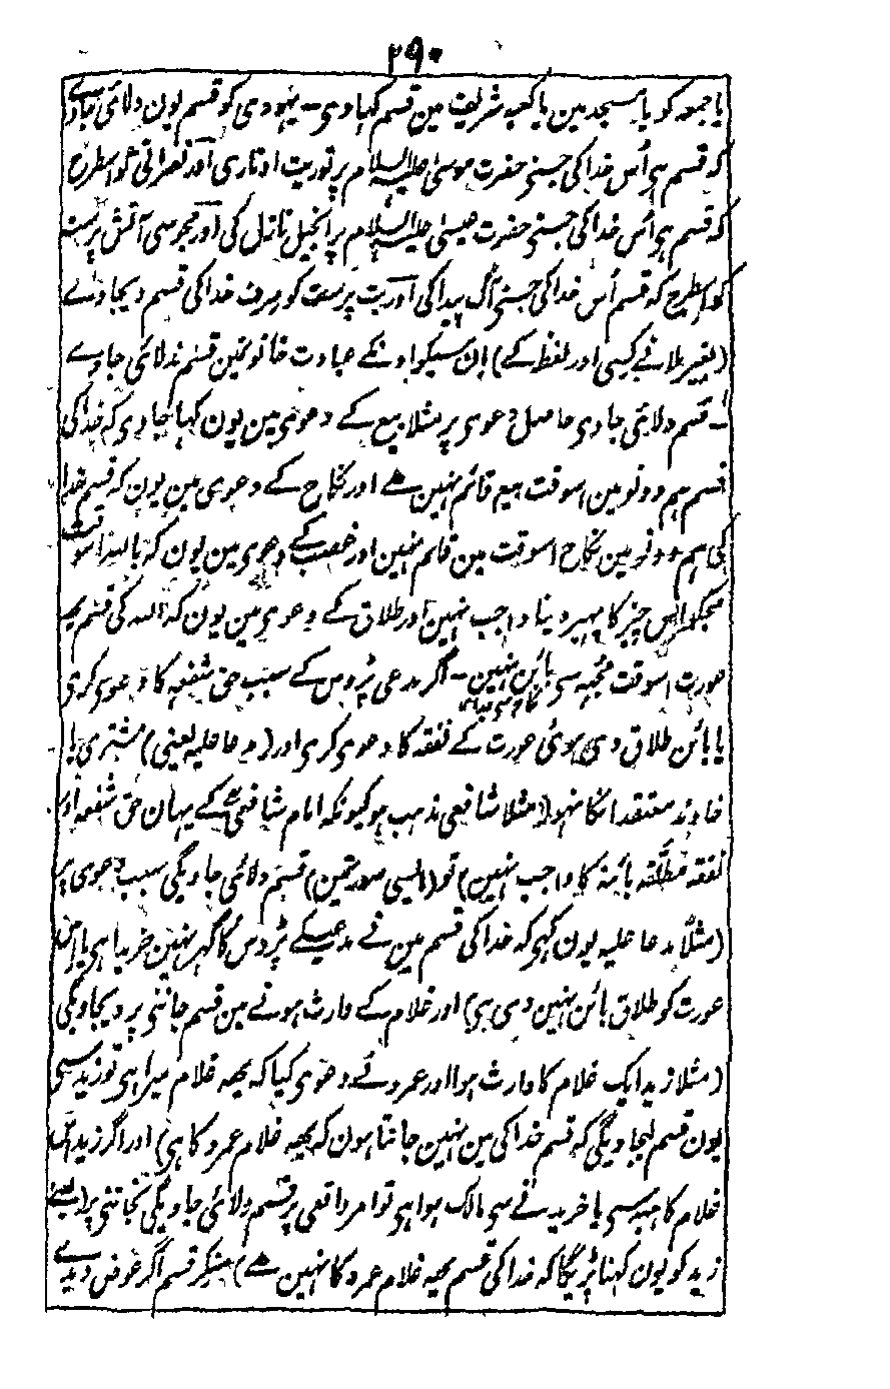 ۲۹۰
یا جمعہ کو یا مسجد مین یا کعبہ شریف مین قسم کہا دی۔ یہودی کو قسم یون دلائی جاوے
کہ قسم ہی اُس خدا کی جسنی حضرت موسیٰ علیہ السلام پر توریت اوتاری اور نصرانی کو اسطرح
کہ قسم ہی اُس خدا کی جسنی حضرت عیسیٰ علیہ السلام پر انجیل نازل کی اور مجوسی آتش پرست
کو اسطرح کہ قسم اُس خدا کی جسنی آگ پیدا کی اور بت پرست کو صرف خدا کی قسم دیجاوے
(بغیر ملانے کیسی اور لفظ کے) ان سبکو اونکے عبادت خانونمین قسم ندلائی جاوے
قسم دلائی جاوی حاصل دعوی پر مثلا بیع کے دعوی مین یون کہا جاوی کہ خدا کی
قسم ہم دونو مین اسوقت بیع قائم نہین ہے اور نکاح کے دعوی مین یون کہ قسم خدا
کی ہم دونو مین نکاح اسوقت مین قائم نہین اور غصب کے دعوی مین یون کہ باللہ اسوقت
مجکو اس چیز کا پہیر دینا واجب نہین اور طلاق کے دعوی مین یون کہ اللہ کی قسم یہہ
عورت اسوقت مجہہ سی بائن نہین۔ اگر مدعی پڑوس کے سبب حق شفعہ کا دعوی کری
یا بائن طلاق دی ہوئی عورت کے نفقہ کا دعوی کری اور (مدعا علیہ یعنی) مشتری یا
خاوند معتقد انکا نہو (مثلا شافعی مذہب ہو کیونکہ امام شافعیؒ کے یہان حق شفعہ اور
نفقہ مطلّقہ بائنہ کا واجب نہین) تو (ایسی صورتمین) قسم دلائی جاویگی سبب دعوی پر
(مثلاً مدعا علیہ یون کہی کہ خدا کی قسم مین نے مدعیکے پڑوس کا گہر نہین خریدا ہی یا اس
عورت کو طلاق بائن نہین دی ہی) اور غلام کے وارث ہونے مین قسم جاننی پر دیجاویگی
(مثلا زید ایک غلام کا وارث ہوا اور عمرو نے دعوی کیا کہ یہہ غلام میرا ہی تو زید سی
یون قسم لیجاویگی کہ قسم خدا کی مین نہین جانتا ہون کہ یہہ غلام عمرو کا ہی) اور اگر زید اس
غلام کا ہبہ سی یا خریدنے سی مالک ہوا ہی تو امر واقعی پر قسم دلائی جاویگی نجاننی پر (یعنے
زید کو یون کہنا پڑیگا کہ خدا کی قسم یہہ غلام عمرو کا نہین ہے) منکر قسم اگر عوض دیدے